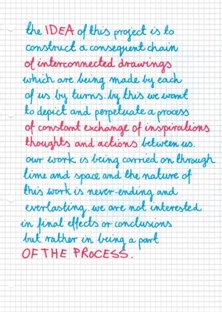 the IDEA of this project is to
construct a consequent chain
of interconnected drawings
which are being made by each
of us by turns. by this we want
to depict and perpetuate a process
of constant exchange of inspirations
thoughts and actions between us.
our work is being carried on through
time and space and the nature of
this work is never-ending and
everlasting. we are not interested
in final effects or conclusions
but rather in being a part
OF THE PROCESS.